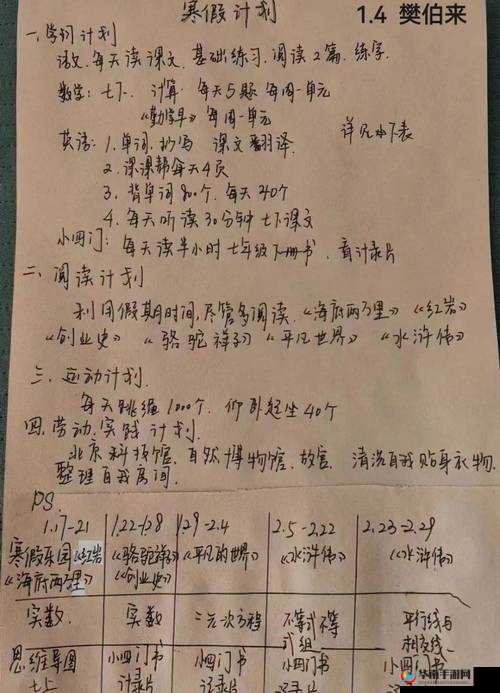 寒假计划
1.4 樊伯来
一、学习计划
语文：每天读课文，基础练习，阅读2篇，练字。
数学：七下. 计算 每天5题 每周一单元
《勤学早》每周一单元
详见如下表
英语：1.单词，抄写 课文翻译.
2.课课帮每天4页
3.背单词800个，每天40个
4.每天听读30分钟 七下课文
小四门：每天读半小时七年级下册书，看计录片
二、阅读计划
利用假期时间，尽管多阅读.《海底两万里》《红岩》
《创业史》《骆驼祥子》《平凡世界》《水浒传》
三、运动计划.
每天跳绳1000个. 仰卧起坐40个
四.劳动.实践计划.
北京科技馆，自然博物馆，故宫. 清洗自我贴身衣物.
整理自我房间.
PS:
1.17-21 1.22-1.28 1.29-2.4 2.5-2.22 2.23-2.29
寒假乐园《红岩》 《骆驼祥子》 《平凡的世界》 《水浒传》 《水浒传》
《海底两万里》 《创业史》
实数. 实数 二元一次方程 不等式不等 平行线与
式组 相交线
思维导图 小四门书 小四门书 小四门书 小四门书
七上 计录片 计录片 计录片
华南手游网